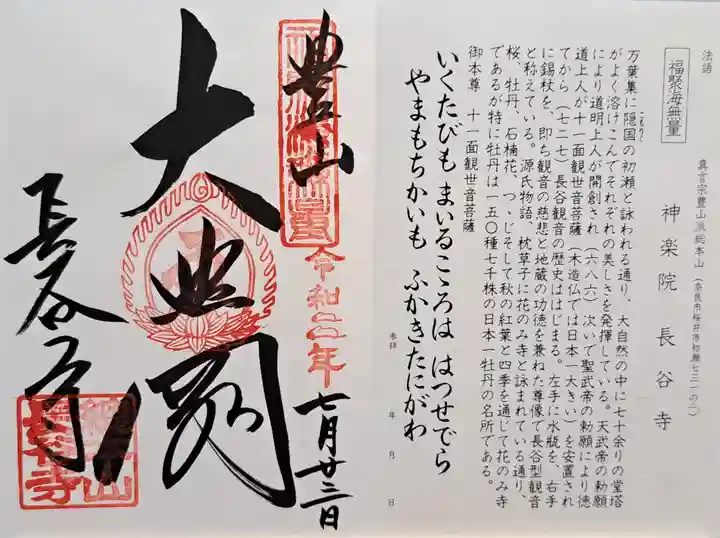 法語
福聚海無量
真言宗豊山派総本山(奈良市桜井市初瀬七三一の一)
神楽院 長谷寺
万葉集に隠国の初瀬と詠われる通り、大自然の中に七十余りの堂塔
がよく溶けこんでそれぞれの美しさを発揮している。天武帝の勅願
により道明上人が開創され(六八六)次いで聖武帝の勅願により徳
道上人が十一面観世音菩薩(木造仏では日本一大きい)を安置され
てから(七二七)長谷観音の歴史ははじまる。左手に水瓶を、右手
に錫杖を、即ち観音の慈悲と地蔵の功徳を兼ねた尊像で長谷型観音
と称えている。源氏物語、枕草子に花のみ寺と詠まれている通り、
桜、牡丹、石楠花、つゝじそして秋の紅葉と四季を通じて花のみ寺
であるが特に牡丹は一五〇種七千株の日本一牡丹の名所である。
御本尊 十一面観世音菩薩
いくたびも まいるこゝろは はつせでら
やまもちかいも ふかきたにがわ
参拝 年 月 日
豊山
令和二年
七月廿三日
大悲閣
長谷寺